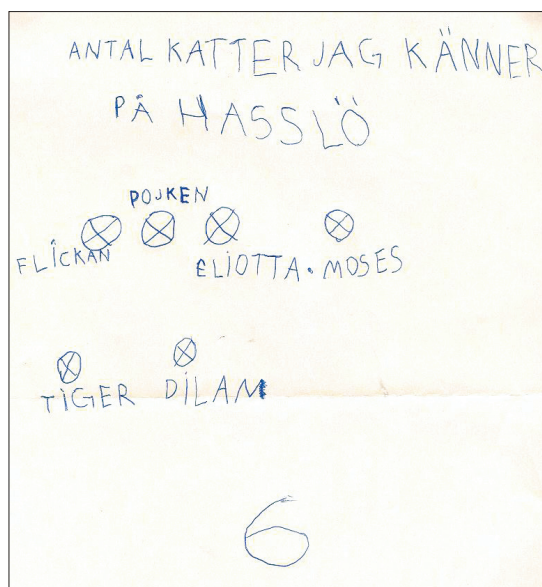 ANTAL KATTER JAG KÄNNER
PÅ HASSLÖ
POJKEN
FLICKAN ELIOTTA. MOSES
TIGER DILAM
6